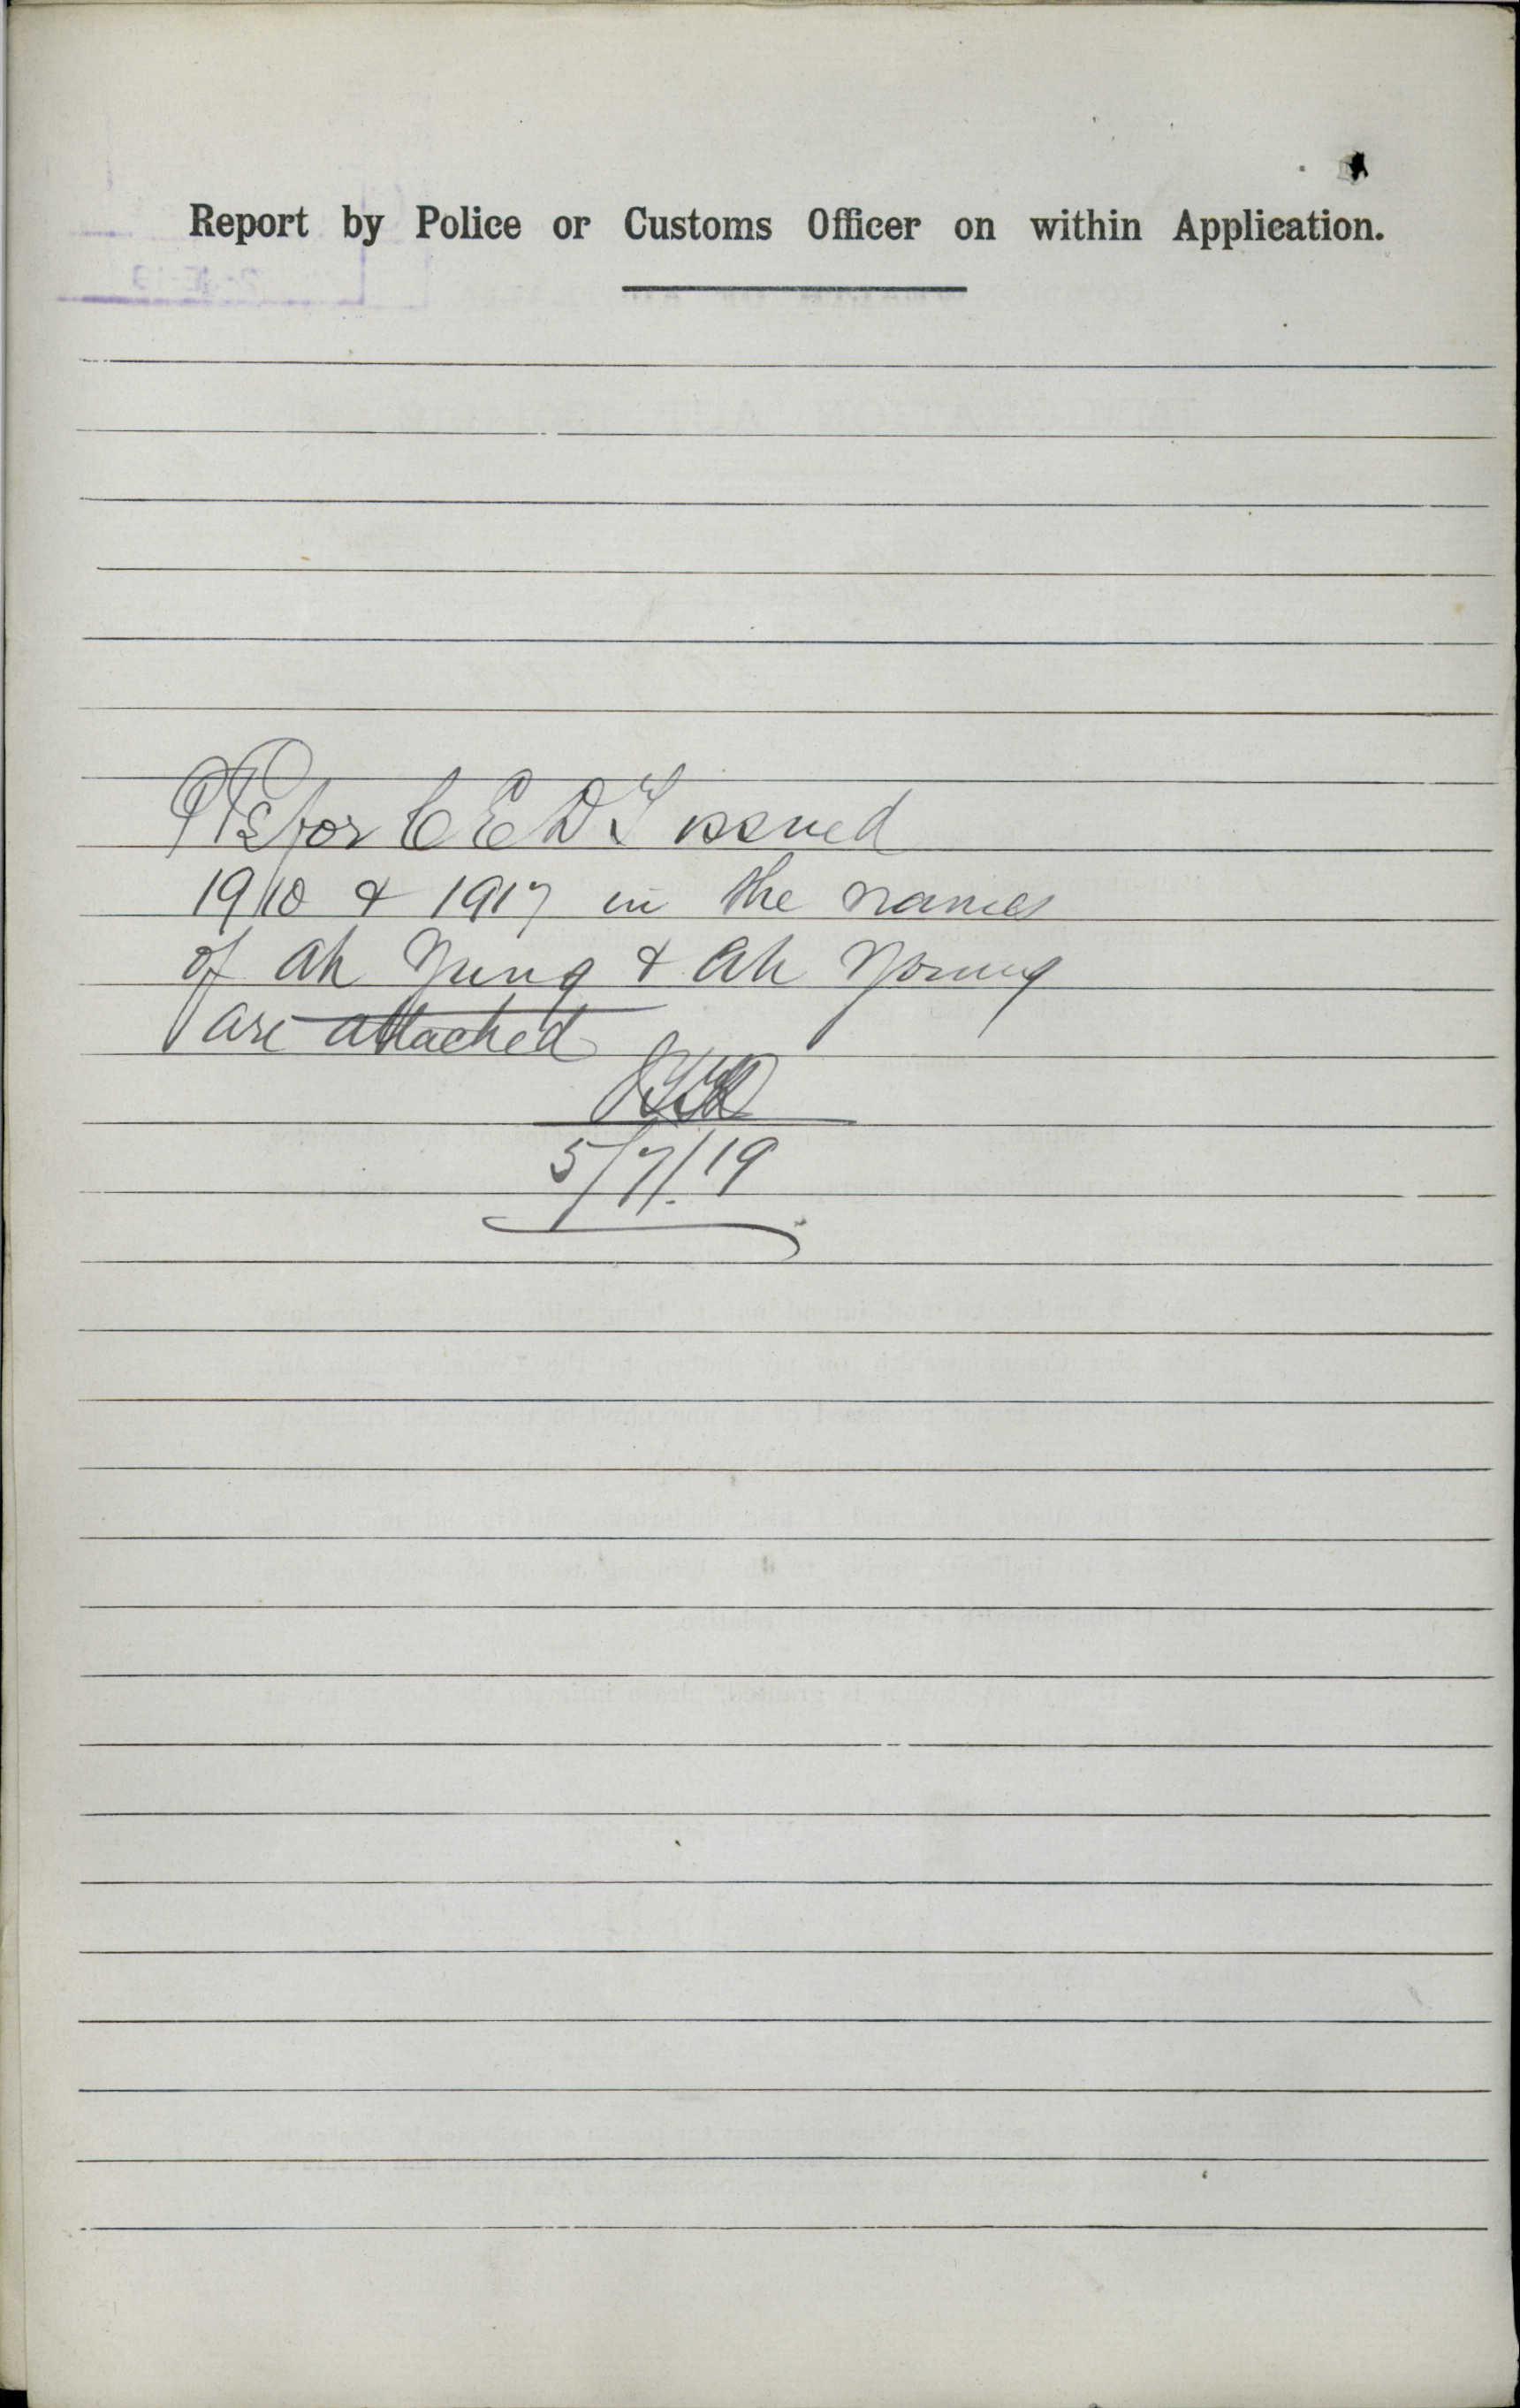 Report by Police or Customs Officer on within Application.
for C E D T issued
1910 & 1917 in the names
of Ah Yung & Ah Young
are attached
5/7/19